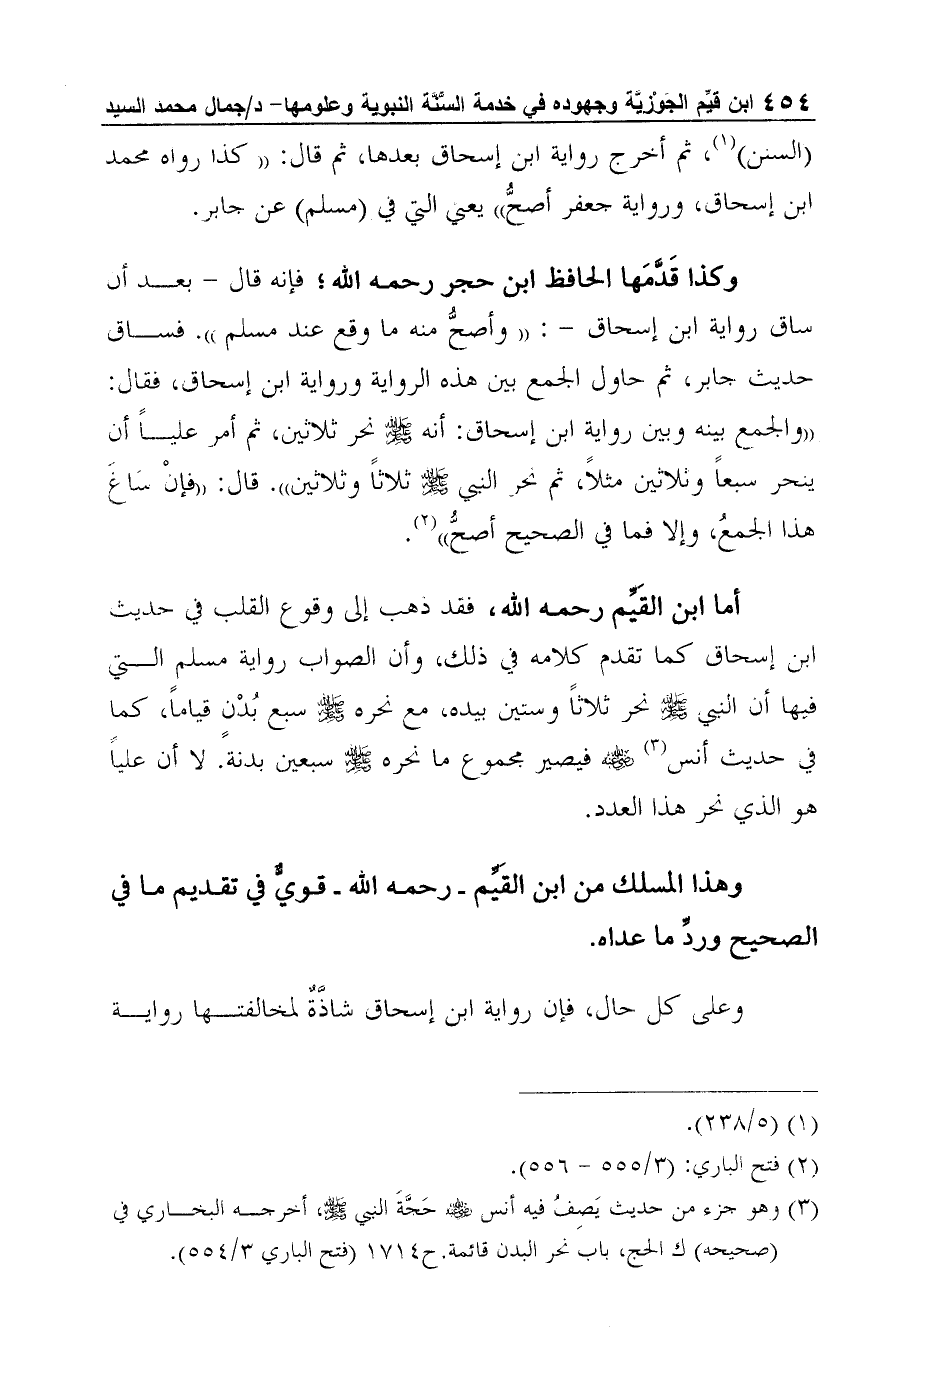 ٤٥٤ ابن قيِّم الجَوْزيَّة وجهوده في خدمة السنَّة النبوية وعلومها- د/جمال محمد السيد
(السنن)(١)، ثم أخرج رواية ابن إسحاق بعدها، ثم قال: (( كذا رواه محمد
ابن إسحاق، ورواية جعفر أصحُّ)) يعني التي في (مسلم) عن جابر.
وكذا قَدَّمَها الحافظ ابن حجر رحمه الله ؛ فإنه قال – بعـــد أن
ساق رواية ابن إسحاق – : (( وأصحُّ منه ما وقع عند مسلم )). فســـاق
حديث جابر، ثم حاول الجمع بين هذه الرواية ورواية ابن إسحاق، فقال:
((والجمع بينه وبين رواية ابن إسحاق: أنه ﷺ نحر ثلاثين، ثم أمر عليـــاً أن
ينحر سبعاً وثلاثين مثلاً، ثم نحر النبي ﷺ ثلاثاً وثلاثين)). قال: ((فإنْ سَاغَ
هذا الجمعُ، وإلا فما في الصحيح أصحُّ))(٢).
أما ابن القيِّم رحمه الله، فقد ذهب إلى وقوع القلب في حديث
ابن إسحاق كما تقدم كلامه في ذلك، وأن الصواب رواية مسلم الـــتي
فيها أن النبي ﷺ نحر ثلاثاً وستين بيده، مع نحره ﷺ سبع بُدْنٍ قياماً، كما
في حديث أنس(٣) رضي الله عنه فيصير مجموع ما نحره ﷺ سبعين بدنة. لا أن علياً
هو الذي نحر هذا العدد.
وهذا المسلك من ابن القيِّم ـ رحمه الله ـ قـويٌّ في تقـديم مـا في
الصحيح وردِّ ما عداه.
وعلى كل حال، فإن رواية ابن إسحاق شاذَّةٌ لمخالفتـــها روايـــة
(١) (٢٣٨/٥).
(٢) فتح الباري: (٥٥٥/٣ – ٥٥٦).
(٣) وهو جزء من حديث يَصِفُ فيه أنس رضي الله عنه حَجَّةَ النبي ﷺ، أخرجـــه البخـــاري في
(صحيحه) ك الحج، باب نحر البدن قائمة. ح١٧١٤ (فتح الباري ٥٥٤/٣).